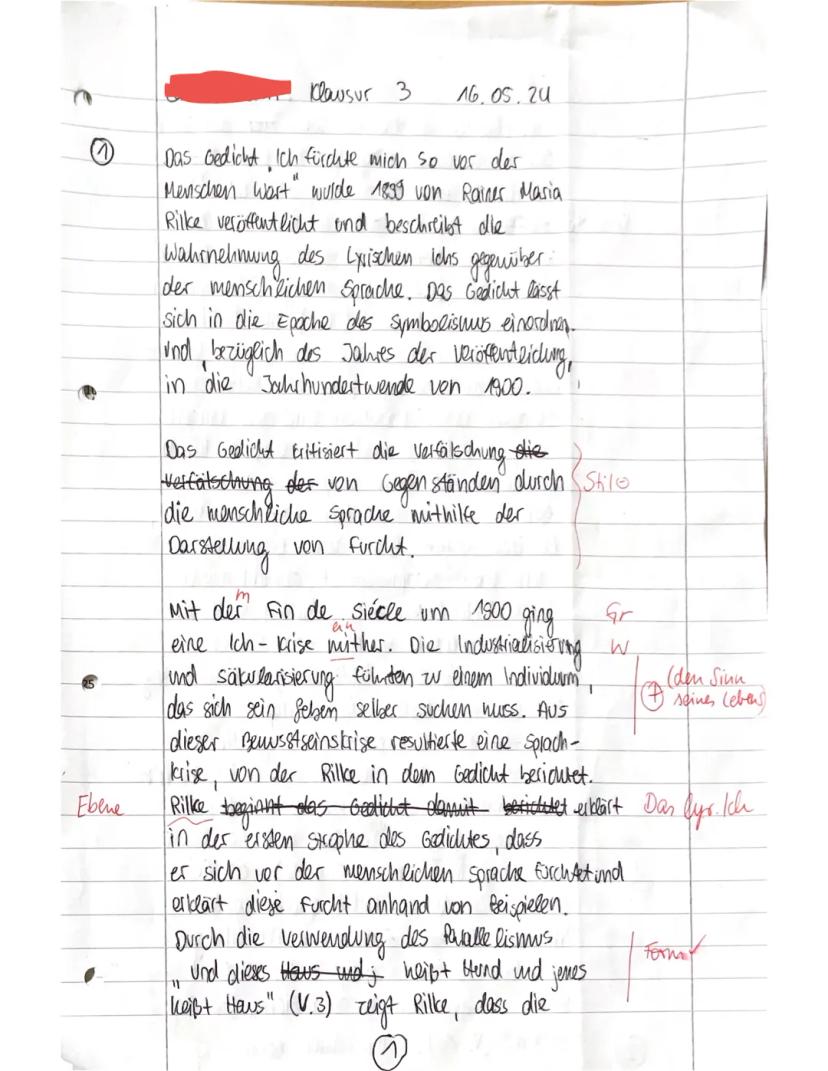 Klausur 3 16.05.24
①
Das Gedicht „Ich fürchte mich so vor der
Menschen Wort" wurde 1899 von Rainer Maria
Rilke veröffentlicht und beschreibt die
Wahrnehmung des Lyrischen Ichs gegenüber
der menschlichen Sprache. Das Gedicht lässt
sich in die Epoche des Symbolismus einordnen.
Und, bezüglich des Jahres der Veröffentlichung,
in die Jahrhundertwende von 1900.
Das Gedicht kritisiert die Verfälschung die
Verfälschung der von Gegenständen durch Stil
die menschliche Sprache mithilfe der
Darstellung von Furcht.
m
Mit der Fin de Siécle um 1900 ging Gr
ein
eine Ich-Krise mither. Die Industrialisierung W
und Säkularisierung führten zu einem Individuum, (den Sinn
das sich sein Leben selber suchen muss. Aus seines Lebens)
dieser Bewusstseinskrise resultierte eine Sprach-
krise, von der Rilke in dem Gedicht berichtet.
Ebene Rilke beginnt das Gedicht damit berichtet erklärt Das lyr. Ich
in der ersten Strophe des Gedichtes, dass
er sich vor der menschlichen Sprache fürchtet und
erklärt diese Furcht anhand von Beispielen.
Durch die Verwendung des Parallelismus
„Und dieses Haus und j heißt Hund und jenes
heißt Haus" (V.3) zeigt Rilke, dass die
①